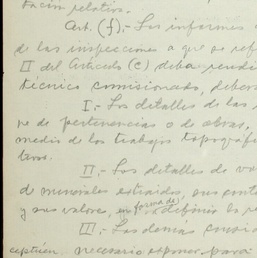 tación relativa.
Art. (f).- Los informes
de las inspecciones a que se ref
II del Artículo (e) deba rendi
técnico comisionado, deber
I.- Los detalles de las
re de pertenencias o de obras,
medio de los trabajos topográf
tros.
II.- Los detalles de vo
de minerales extraídos, sus
y sus valores, en forma de definir la re
III.- Las demás
necesario exponer para